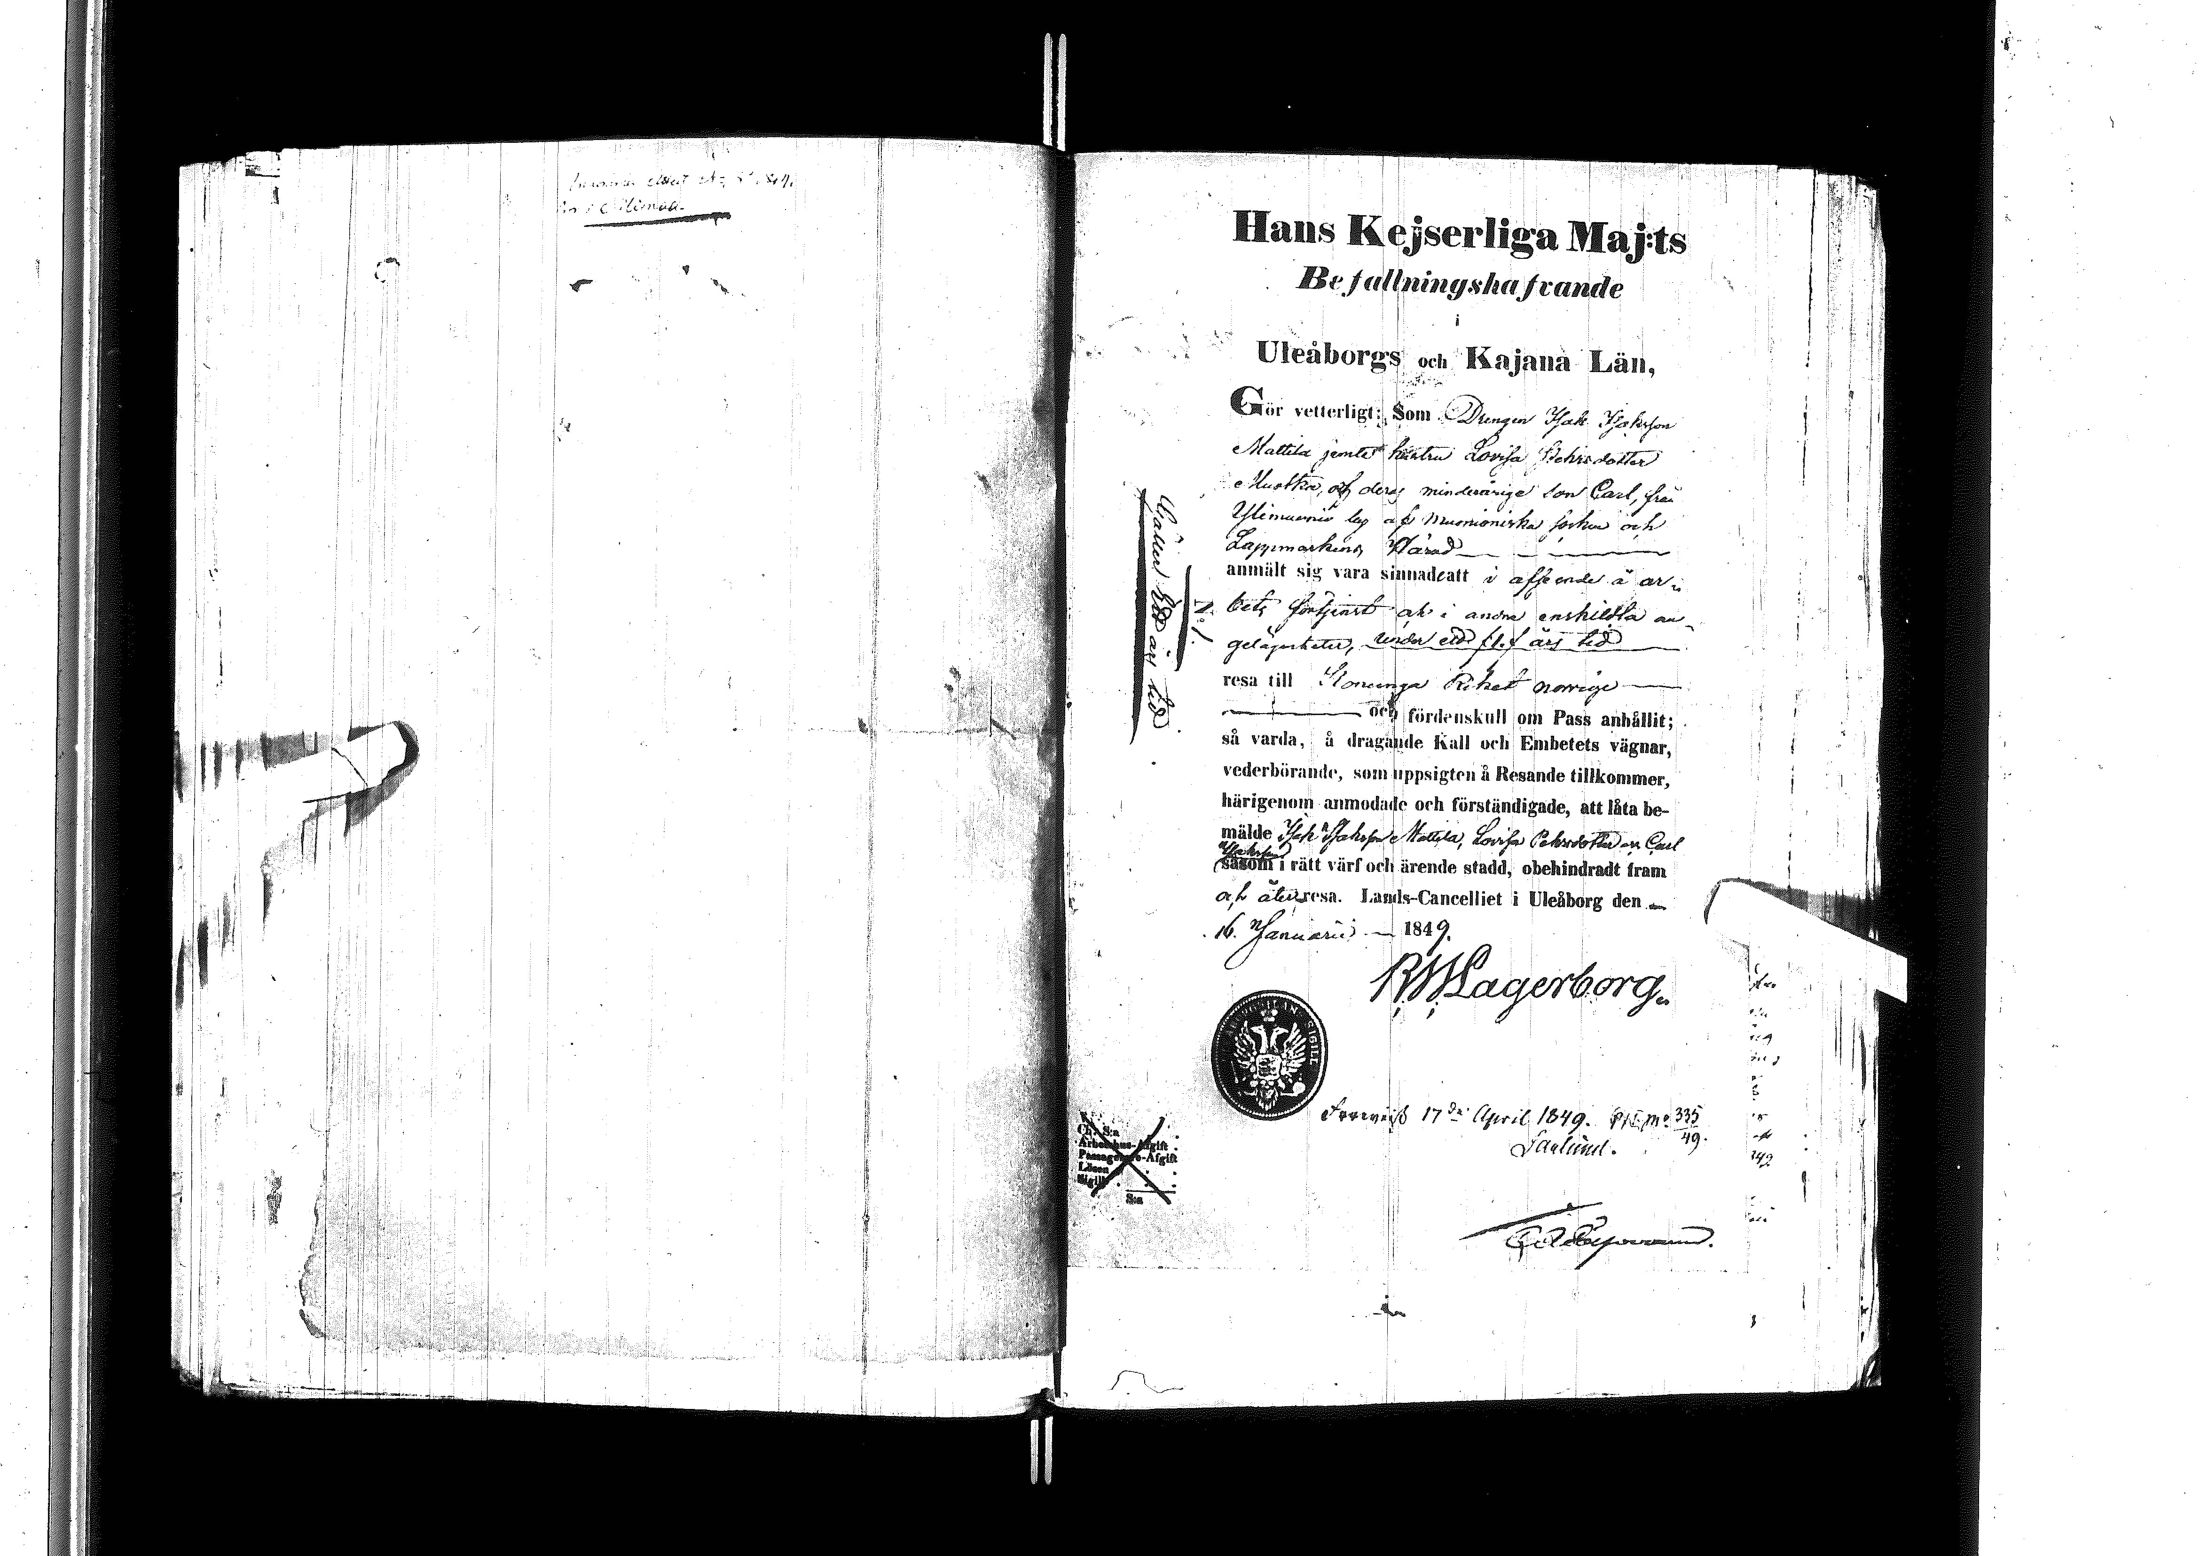 Hans Kejserliga Maj:ts
Befallningshafvande
i
Uleåborgs och Kajana Län,
Gör vetterligt: Som Drengen Isak Isaksson
Mattila jemte hustru Lovisa Pehrsdotter
och deras minderårige son Carl, från
by af Muonioniska socken och
Lappmarkens Härad
anmält sig vara sinnade att i afseende å ar-
bets förtjenst och i andra enskildta an-
gelägenheter, under ett års tid
resa till Konunga Riket Norrige
och fördenskull om Pass anhållit;
så varda, å dragande Kall och Embetets vägnar,
vederbörande, som uppsigten å Resande tillkommer,
härigenom anmodade och förständigade, att låta be-
mälde Isak Isaksson Mattila, Lovisa Pehrsdotter och Carl
Isaksson
såsom i rätt värf och ärende stadd, obehindradt fram
och återresa. Lands-Cancelliet i Uleåborg den
16. Januarii 1849.
RWLagerborg.
Gäller Ett års tid
SIGILL
Ch. S:a
Arbetshus-Afgift
Passagerare-Afgift
Lösen
Sigill
S:a
Foreviist 17de April 1849. No 335
49.